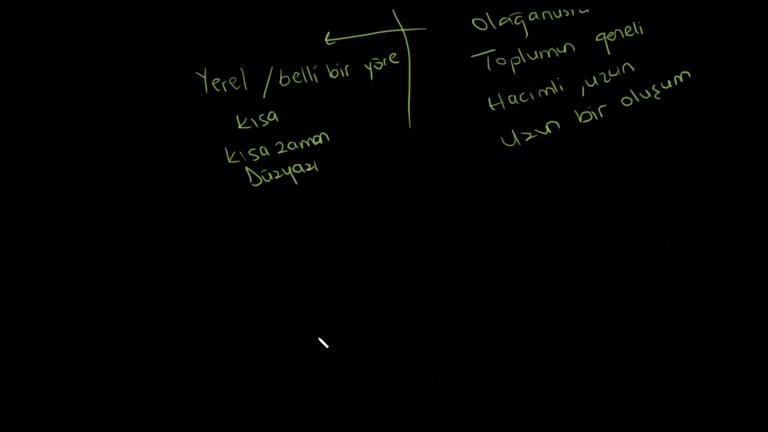 Yerel / belli bir yöre
Kısa
Kısa zaman
Düzyazı
Toplumun geneli
Hacimli, uzun
Uzun bir oluşum